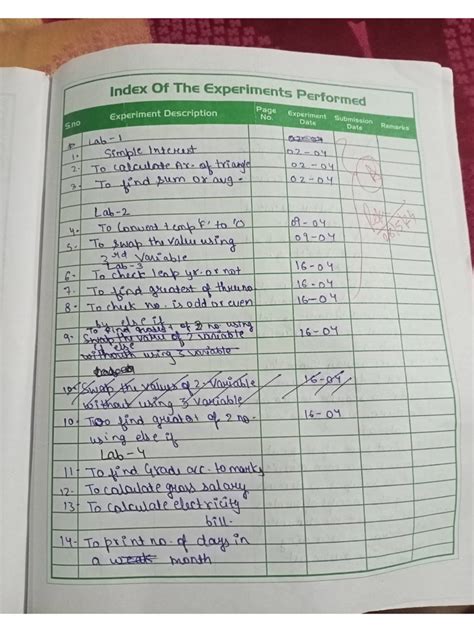 Index Of The Experiments Performed
S.no Experiment Description Page No. Experiment Date Submission Date Remarks
Lab-1
1. Simple Interest 02-04
2. To calculate Ar. of triangle 02-04
3. To find sum or avg. 02-04
Lab-2
4. To Convert temp 'F' to 'C' 09-04
5. To swap the value using 09-04
3rd Variable
Lab-3
6. To check leap yr. or not 16-04
7. To find greatest of three no. 16-04
8. To check no. is odd or even 16-04
by else if
9. To find greatest of 2 no using 16-04
swap the value of 2 variable
if else
without using 3 variable
10. Swap the values of 2-Variable 16-04
without using 3 Variable
10. To find greater of 2 no. 16-04
using else if
Lab-4
11. To find Grade acc. to marks
12. To calculate gross salary
13. To calculate electricity
bill.
14. To print no. of days in
a week month